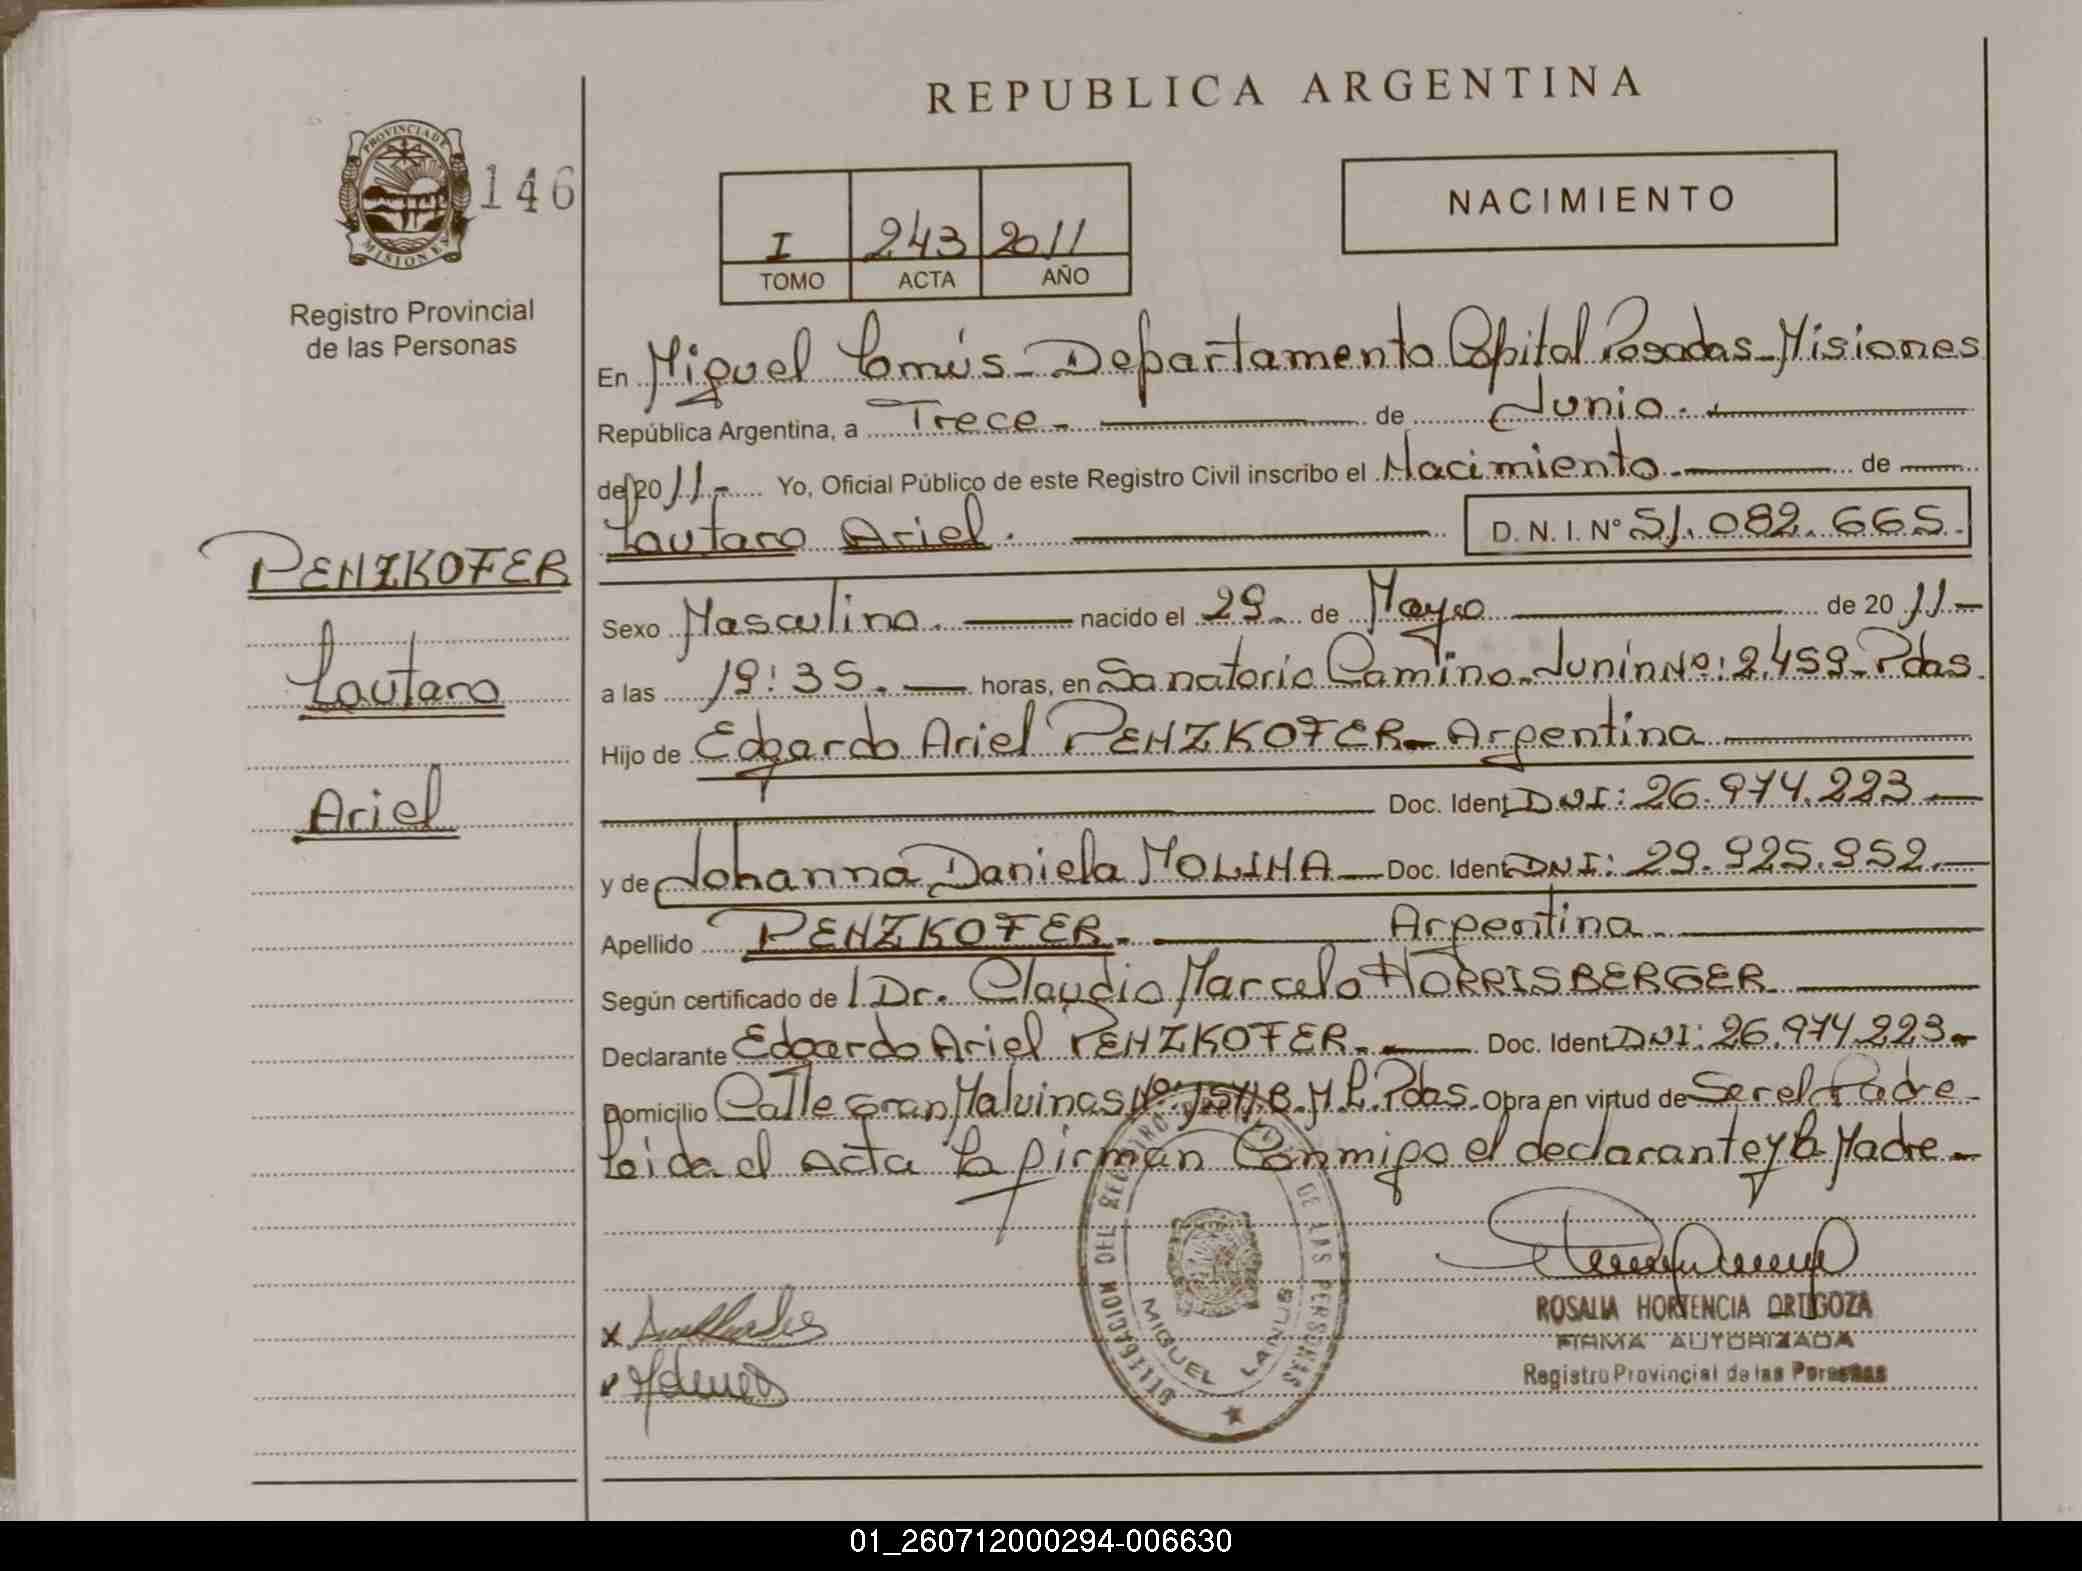 REPUBLICA ARGENTINA
PROVINCIA DE
MISIONES
146
Registro Provincial
de las Personas
NACIMIENTO
I 243 2011
TOMO ACTA AÑO
En Miguel Lanús - Departamento Capital Posadas - Misiones
República Argentina, a Trece - de Junio.
del 2011 - Yo, Oficial Público de este Registro Civil inscribo el Nacimiento. de
Lautaro Ariel. D. N. I. N° 51.082.665.
PENZKOFER
Lautaro
Ariel
Sexo Masculino. nacido el 29 - de Mayo de 2011 -
a las 19:35. horas, en Sanatorio Camino - Junín Nº: 2.459 - Pdas.
Hijo de Edgardo Ariel PENZKOFER - Argentina
Doc. Ident DNI: 26.974.223
y de Johanna Daniela MOLINA Doc. Ident DNI: 29.925.952.
Apellido PENZKOFER - Argentina
Según certificado de Dr. Claudio Marcelo HORRISBERGER
Declarante Edgardo Ariel PENZKOFER. Doc. Ident DNI: 26.974.223 -
Domicilio Calle Gran Malvinas Nº B. M. L. Pdas. Obra en virtud de Ser el Padre
Leída el Acta la firman Conmigo el declarante y la Madre -
DELEGACION DEL REGISTRO DE LAS PERSONAS
MIGUEL LANUS
ROSALIA HORTENCIA ORTIGOZA
FIRMA AUTORIZADA
Registro Provincial de las Personas
01_260712000294-006630